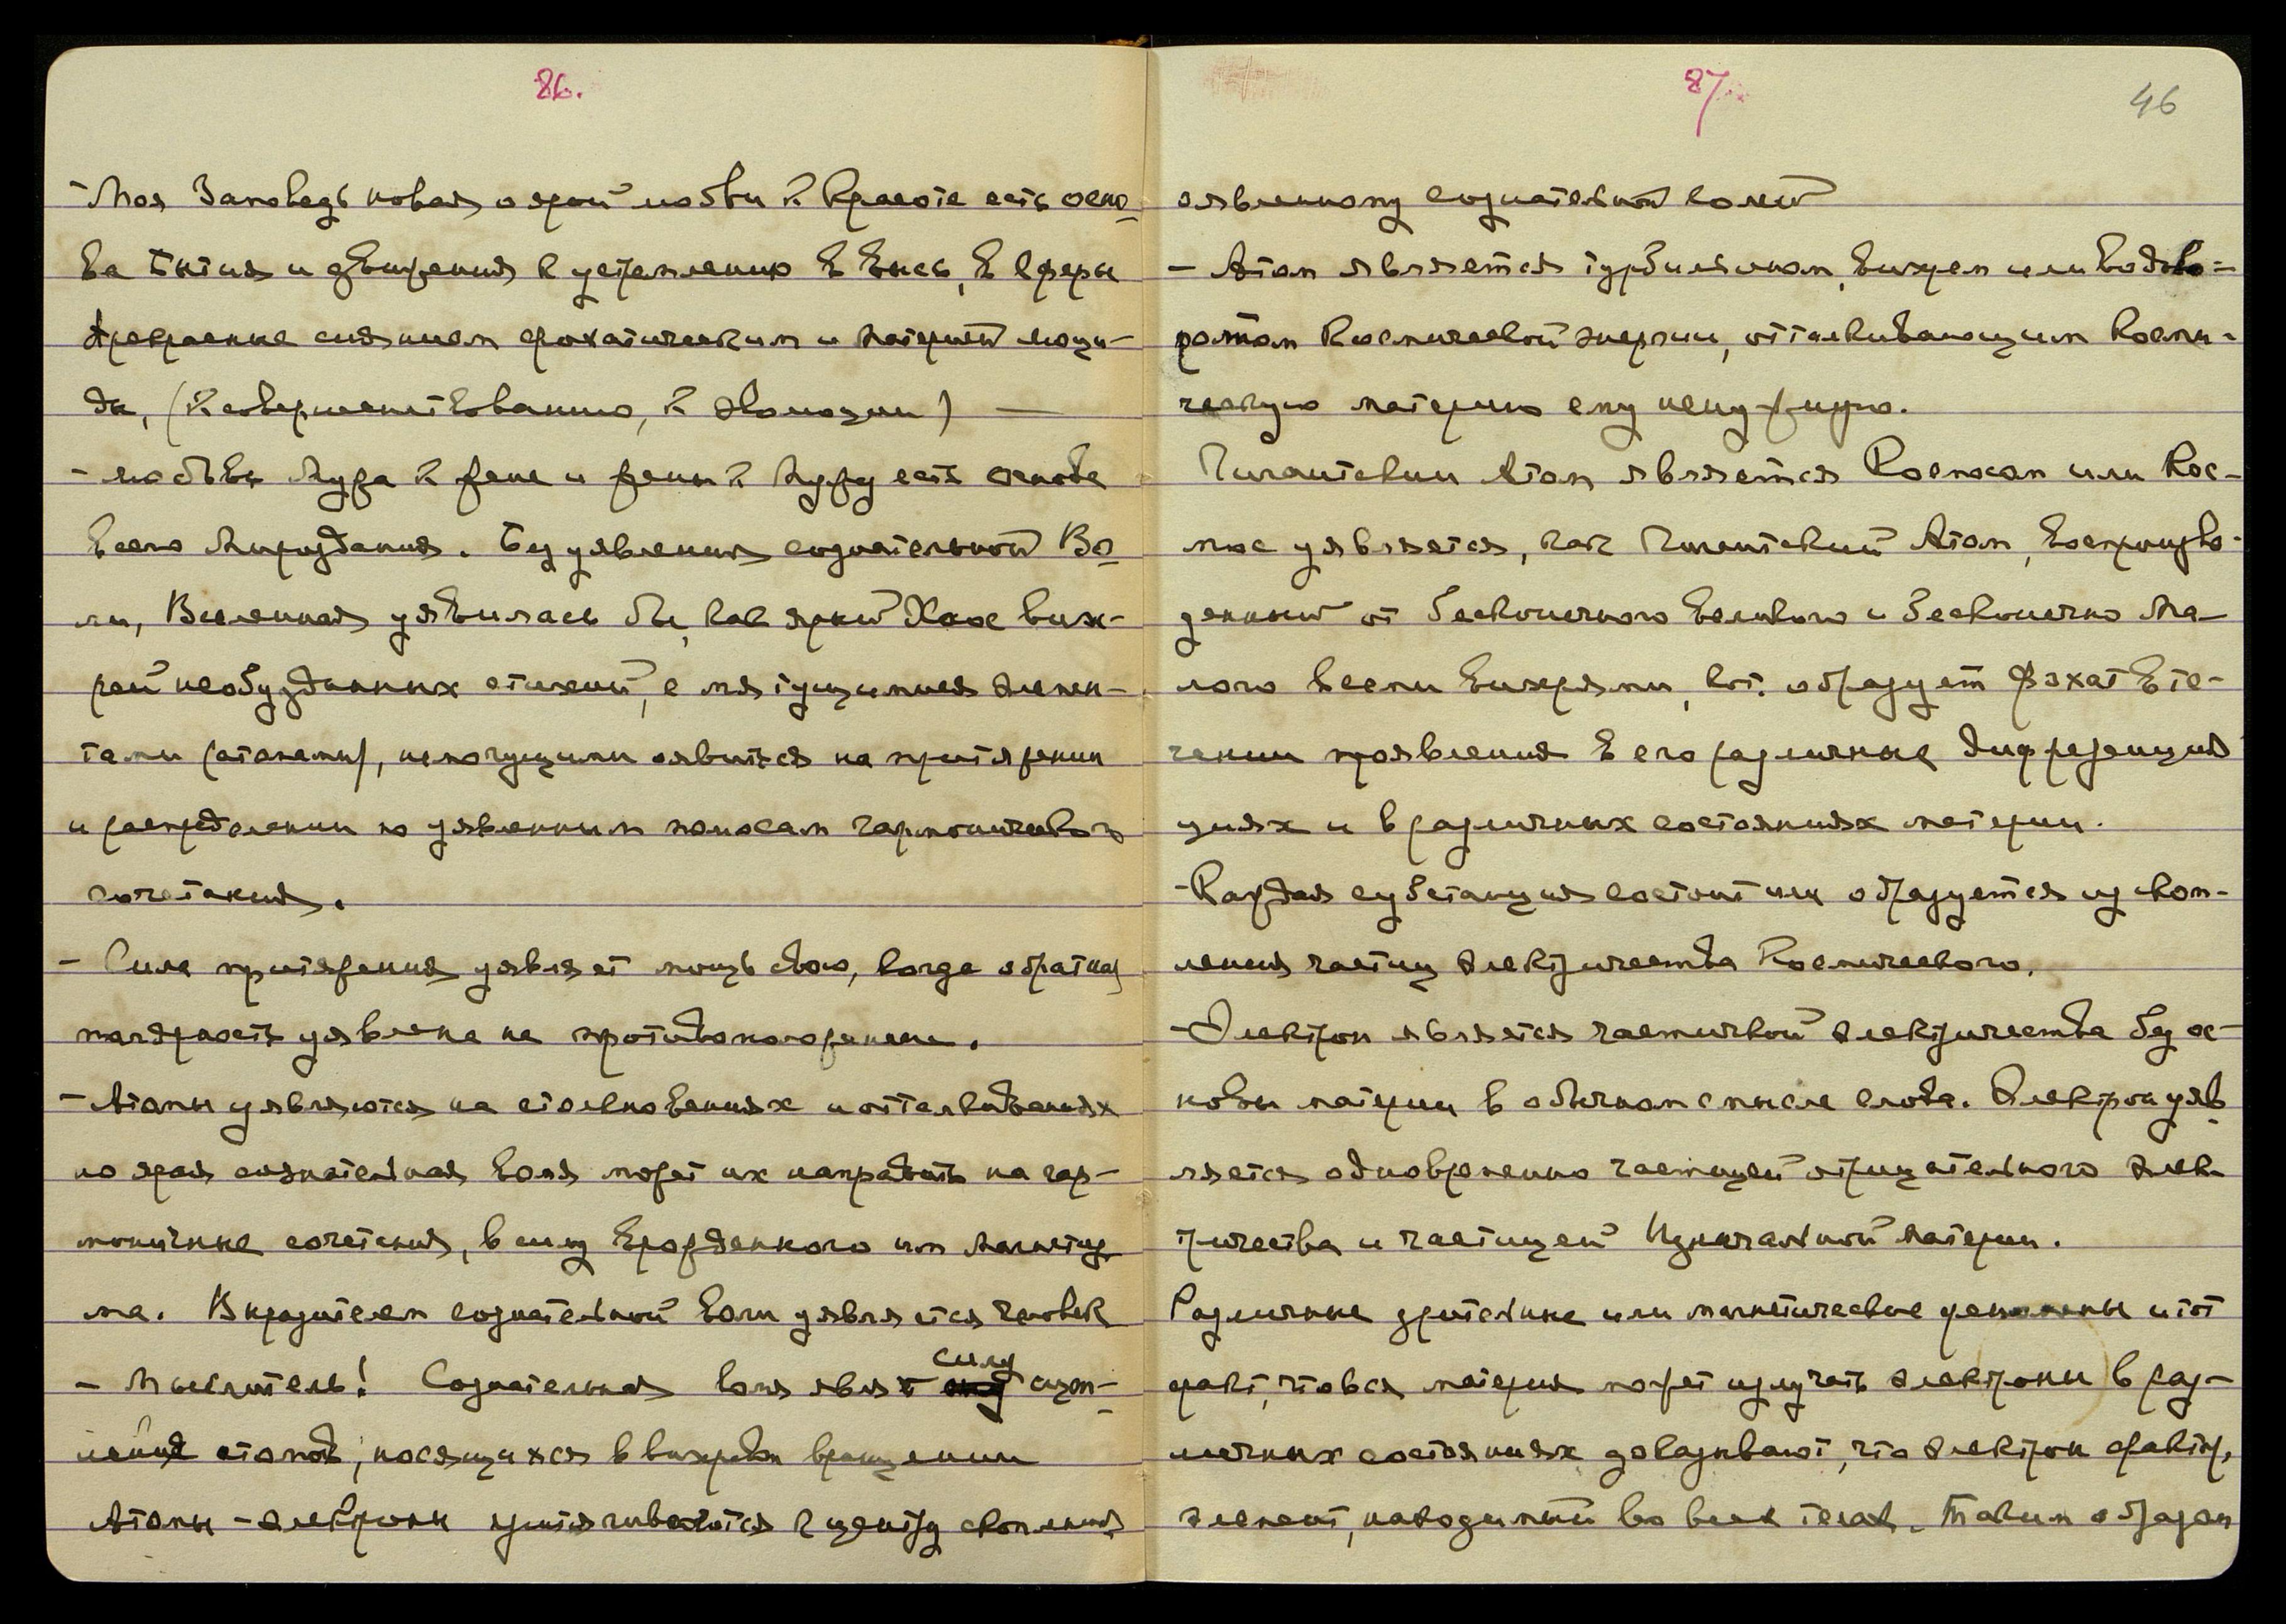 86.
- Моя Заповедь новая о ярой любви к Красоте есть осно-
ва Бытия и движения к устремлению в Высь, в Сферы
прекрасные сиянием фохатическим и Материей Люци-
да, (к совершенствованию, к эволюции) —
- любовь Мужа к жене и жены к Мужу есть основа
всего Мироздания. Без уявления сознательной Во-
ли, Вселенная уявилась бы, как яркий Хаос вих-
рей необузданных стихий, с мятущимися элемен-
тами (атомами), немогущими оявиться на притяжении
и распределении по уявленным полюсам гармонического
сочетания.
- Сила притяжения уявляет мощь свою, когда обратная
полярность уявлена на противоположение.
- Атомы уявляются на столкновениях и отталкиваниях
но ярая сознательная воля может их направить на гар-
моничные сочетания, в силу врожденного им магнетиз
ма. Выразителем сознательной воли уявляется человек
- Мыслитель! Сознательная воля явля т силу сцеп-
ления атомов, носящихся в вихревом вращении
Атомы - электроны притягиваются к центру скопления
87.
46
оявленному сознательной волей
- Атом является турбильоном, вихрем или водово-
ротом Космической энергии, отталкивающим Косми-
ческую материю ему ненужную.
Гигантским Атом является Космосом или Кос-
мос уявляется, как Гигантский Атом, воспроизве-
денный от бесконечного великого и бесконечно Ма-
лого всеми вихрями, кот. образует Фохат в те-
чении проявления в его различные дифференция
циях и в различных состояниях материи.
- Каждая субстанция состоит или образуется из скоп-
ления частиц электричества Космического.
- Электрон является частичкой электричества без ос-
новы материи в обычном смысле слова. Электрон уяв
ляется одновременно частицей отрицательного элек
тричества и частицей Изначальной Материи.
Различные зрительные или магнетические феномены и тот
факт, что вся материя может излучать электроны в раз-
личных состояниях доказывают, что электрон фактич.
элемент, находимый во всех телах. Таким образом